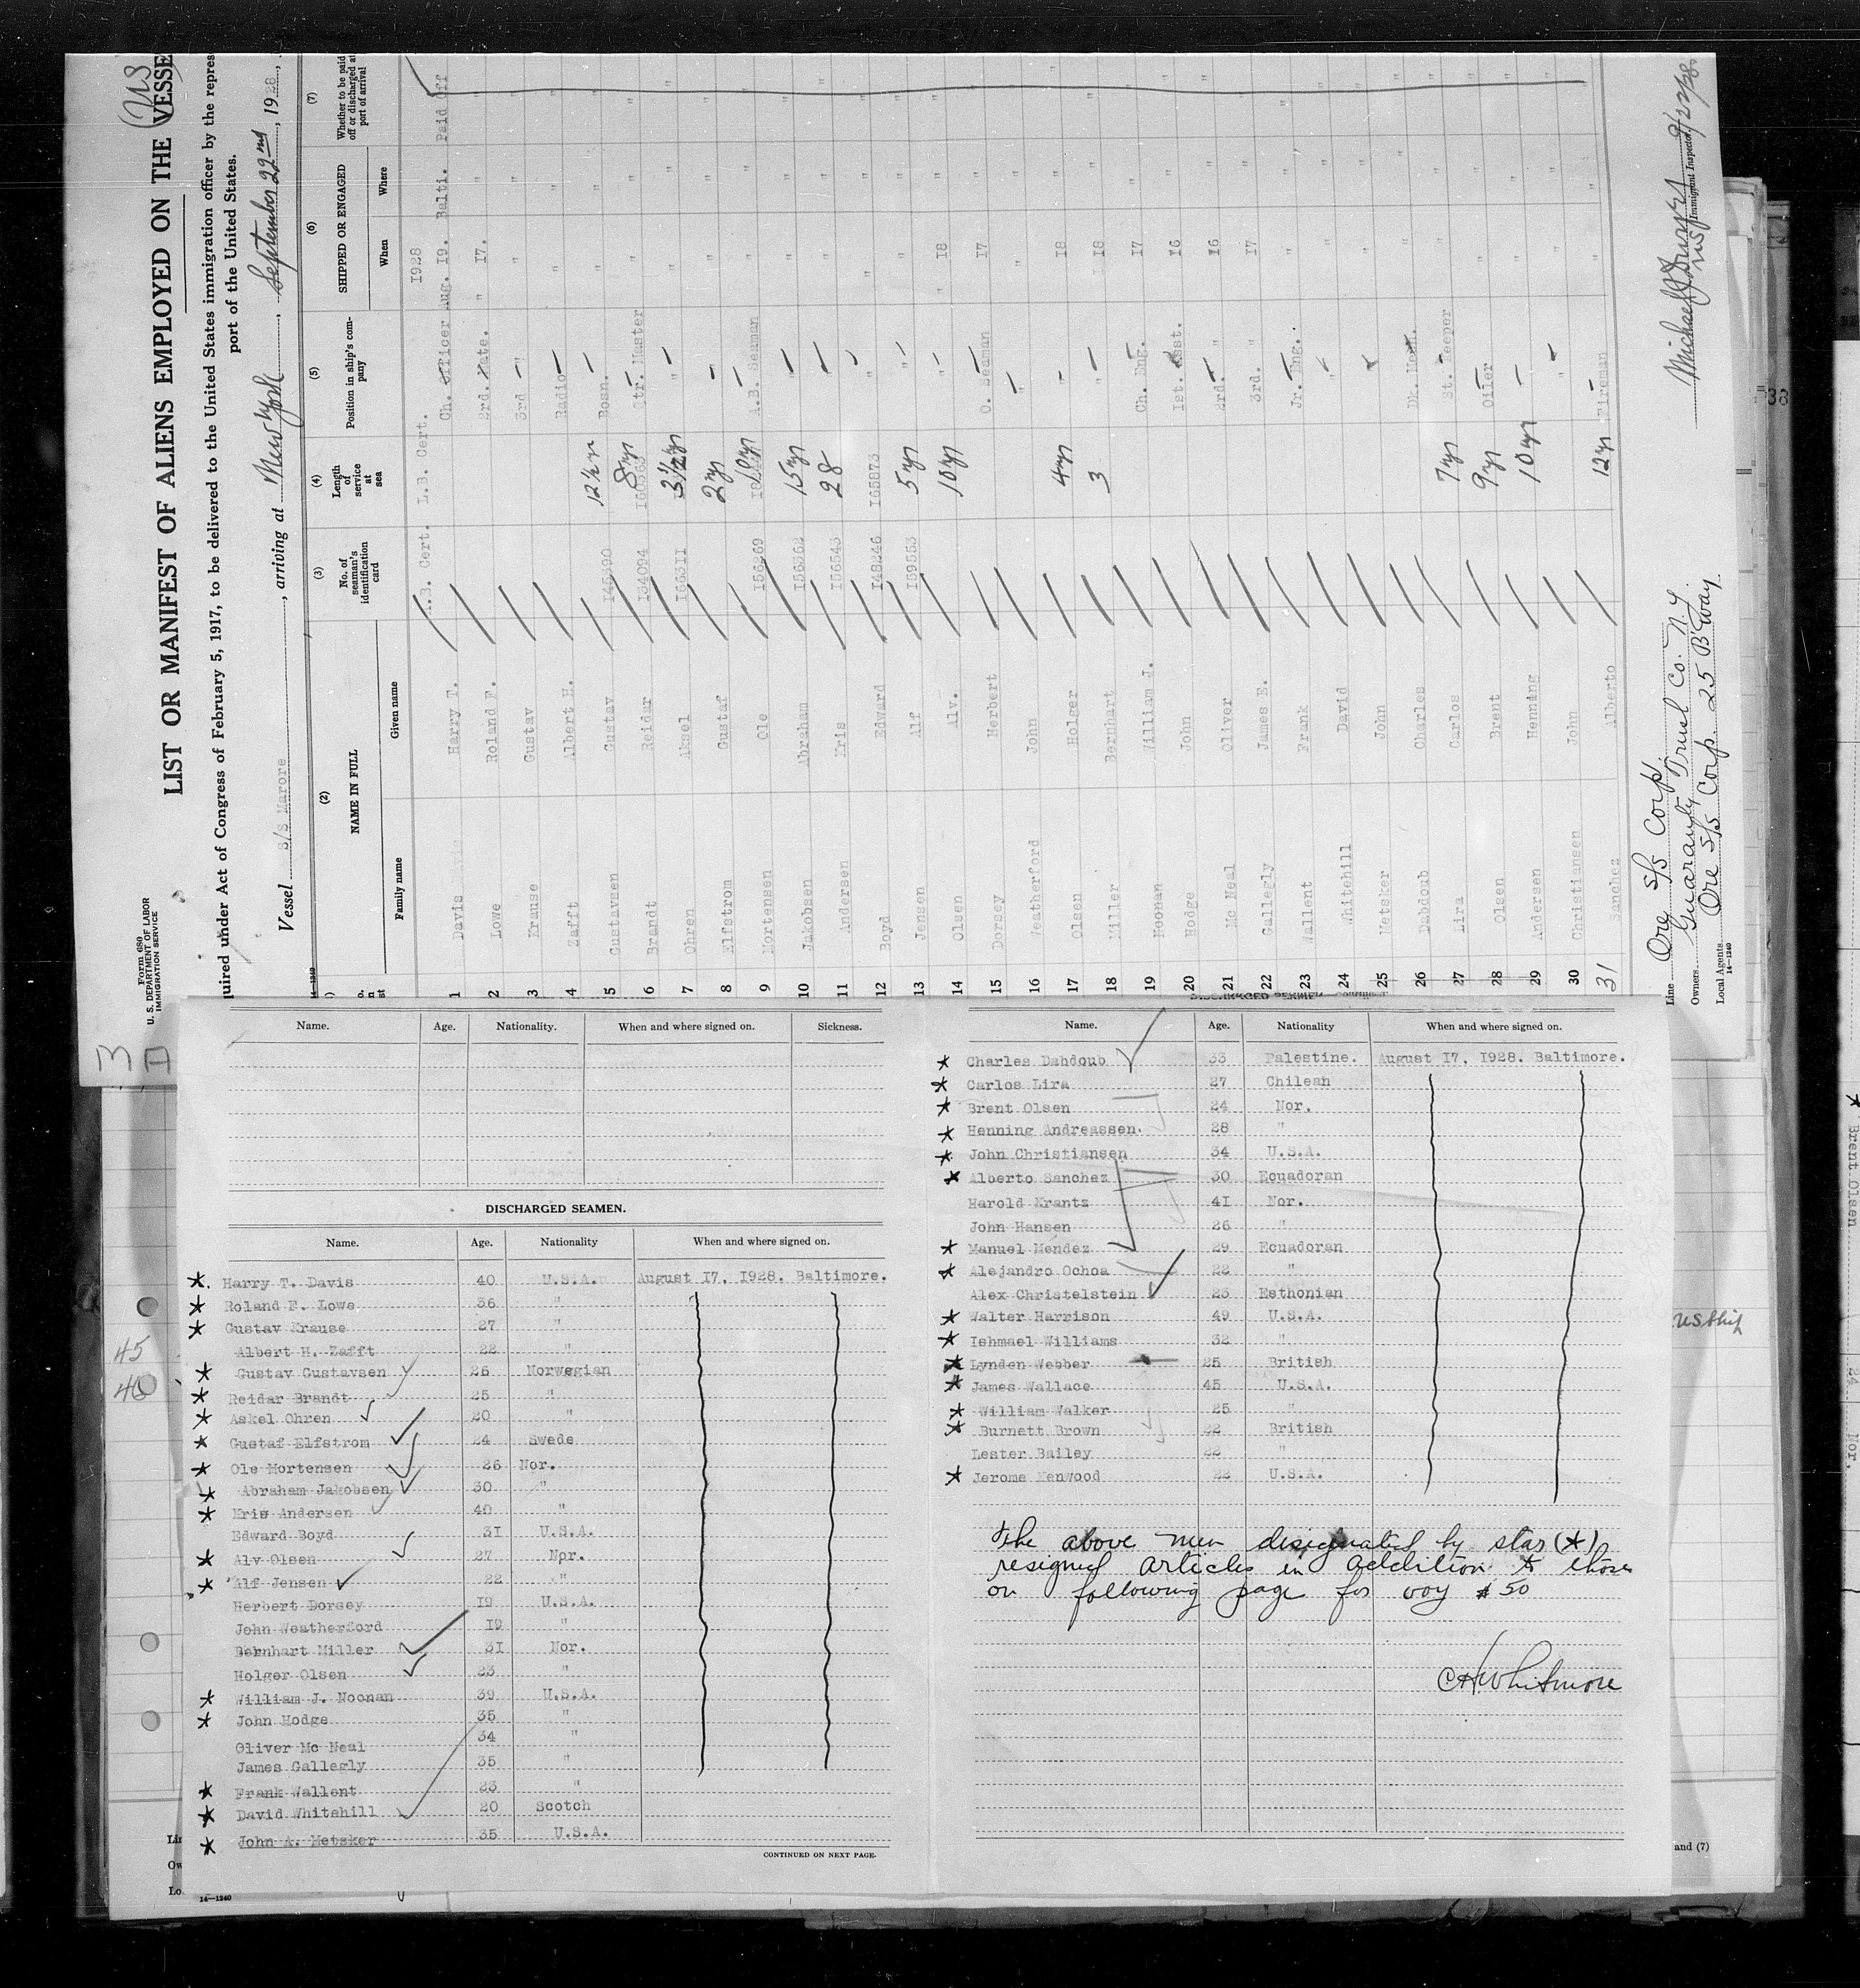 Form 680
U. S. DEPARTMENT OF LABOR
IMMIGRATION SERVICE
(US)
LIST OR MANIFEST OF ALIENS EMPLOYED ON THE VESSE
quired under Act of Congress of February 5, 1917, to be delivered to the United States immigration officer by the repres
port of the United States.
Vessel S/S Marore, arriving at New York, September 22nd, 1928,
14—1240
(2) (3) (4) (5) (6) (7)
NAME IN FULL No. of seaman's identification card Length of service at sea Position in ship's company SHIPPED OR ENGAGED Whether to be paid off or discharged at port of arrival
Family name Given name When Where
A.B. Cert. L.B. Cert. 1928
1 Davis Harry T. Ch. Officer Aug. 19. Balti. Paid Off
2 Lowe Roland F. 2rd. Mate. " 17. " "
3 Krause Gustav 3rd " " " "
4 Zafft Albert H. Radio " " "
5 Gustavsen Gustav 12½ yr Bosn. " " "
6 Brandt Reidar 134094 8 yr Qtr. Master " " "
7 Ohren Aksel 166311 3½ yr " " " "
8 Elfstrom Gustaf 2 yr " " " "
9 Mortensen Ole A.B. Seaman " " "
10 Jakobsen Abraham 156362 15 yr " " " "
11 Andersen Kris 156543 28 " " " "
12 Boyd Edward 148246 165873 " " " "
13 Jensen Alf 159553 5 yr " " " "
14 Olsen Alv. 10 yr " " 18 " "
15 Dorsey Herbert O. Seaman 17 " "
16 Weatherford John " " " "
17 Olsen Holger 4 yr " 18 " "
18 Miller Bernhart 3 " 18 " "
19 Noonan William J. Ch. Eng. 17 " "
20 Hodge John 1st. Asst. 16 " "
21 Mc Neal Oliver 2rd. " 16 " "
22 Gallegly James E. 3rd. " 17 " "
23 Wallent Frank Jr. Eng. " " "
24 Whitehill David " " " "
25 Metsker John " " "
26 Dabdoub Charles Dk. Mech. " " "
27 Lira Carlos 7 yr St. Keeper " " "
28 Olsen Brent 9 yr Oiler " " "
29 Andersen Henning 10 yr " " "
30 Christiansen John " " " "
31 Sanchez Alberto 12 yr Fireman " "
Line Ore S/S Corp.
Owners Guaranty Trust Co. N.Y.
Local Agents Ore S/S Corp. 25 B'Way
14—1240
Immigrant Inspector. 9/22/28
Name. Age. Nationality. When and where signed on. Sickness.
DISCHARGED SEAMEN.
Name. Age. Nationality When and where signed on.
* Harry T. Davis 40 U.S.A. August 17, 1928. Baltimore.
* Roland F. Lowe 36 "
* Gustav Krause 27 "
Albert H. Zafft 22 "
* Gustav Gustavsen 26 Norwegian
* Reidar Brandt 25 "
* Askel Ohren 20 "
* Gustaf Elfstrom 24 Swede
* Ole Mortensen 26 Nor.
* Abraham Jakobsen 30 "
* Kris Andersen 40 "
Edward Boyd 31 U.S.A.
* Alv Olsen 27 Nor.
* Alf Jensen 22 "
Herbert Dorsey 19 U.S.A.
John Weatherford 19 "
Bernhart Miller 31 Nor.
Holger Olsen 23 "
* William J. Noonan 39 U.S.A.
* John Hodge 35 "
Oliver Mc Neal 34 "
James Gallegly 35 "
* Frank Wallent 23 "
* David Whitehill 20 Scotch
* John A. Metsker 35 U.S.A.
CONTINUED ON NEXT PAGE.
14—1240
Name. Age. Nationality When and where signed on.
* Charles Dabdoub 33 Palestine. August 17, 1928. Baltimore.
* Carlos Lira 27 Chilean
* Brent Olsen 24 Nor.
* Henning Andreassen. 28 "
* John Christiansen 34 U.S.A.
* Alberto Sanchez 30 Ecuadoran
Harold Krantz 41 Nor.
John Hansen 26 "
* Manuel Mendez 29 Ecuadoran
* Alejandro Ochoa 22 "
Alex Christelstein 23 Esthonian
* Walter Harrison 49 U.S.A.
* Ishmael Williams 32 "
* Lynden Webber 25 British
* James Wallace 45 U.S.A.
* William Walker 25 "
* Burnett Brown 22 British
Lester Bailey 22 "
* Jerome Kenwood 22 U.S.A.
The above men designated by star (*)
resigned articles in addition to those
on following page for voy # 50
CH Whitmore
45
46
US Ship
and (7)
Brent Olsen 24 Nor.